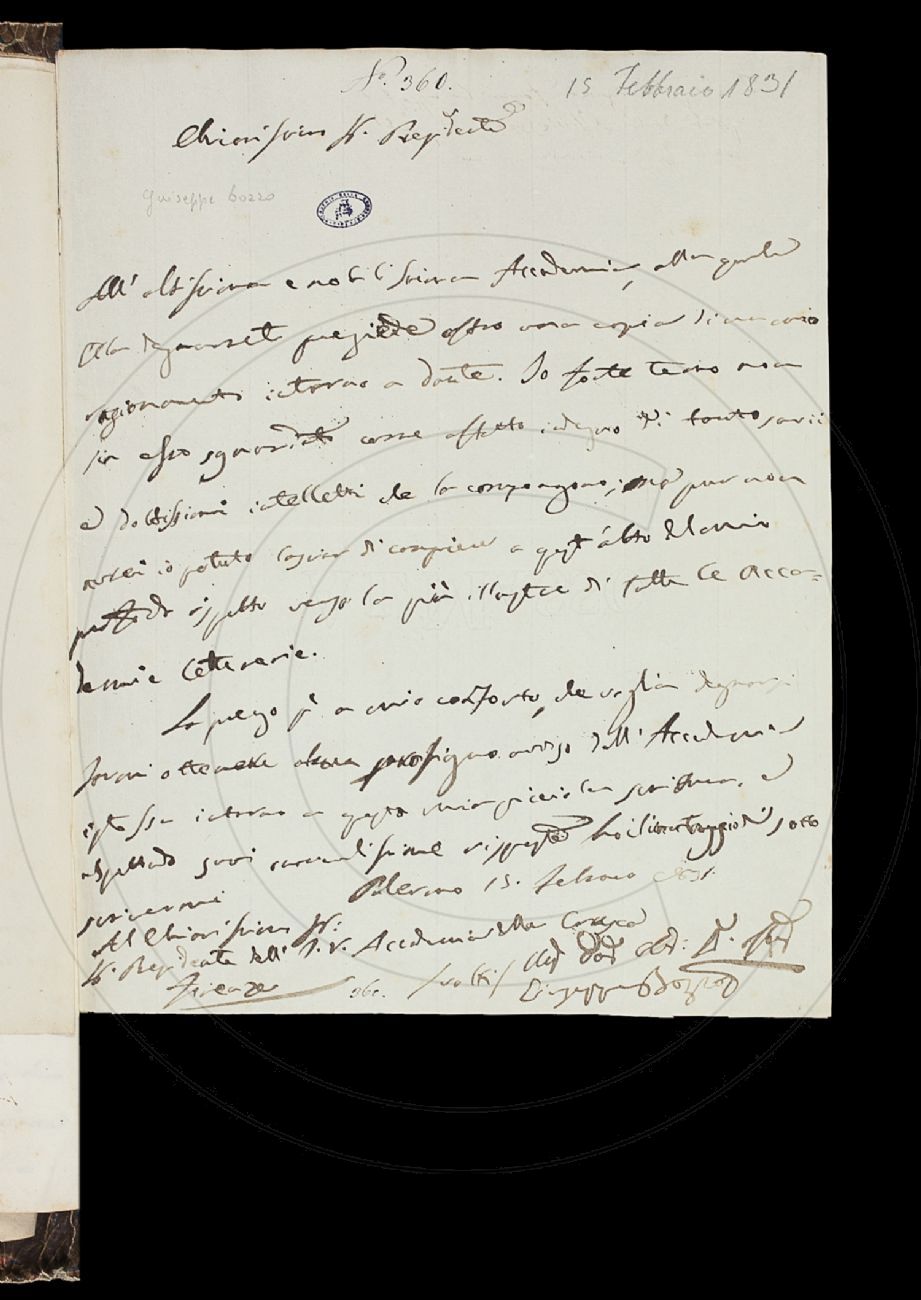 N.° 360.
15 Febbraio 1831
Chiarissimo Sr. Presidente
Giuseppe Bozzo
All' altissima e nobilissima Accademia, alla quale
Ella degnamente presiede offro una copia di un mio
ragionamento intorno a Dante. Io forte temo non
sia esso sguardato come affatto indegno di tanto savii
e dottissimi intelletti che la compongono; ma pur non
avrei io potuto lasciar di compiere a quest' atto del mio
profondo rispetto verso la più illustre di tutte le Acca=
demie letterarie.
La prego a mio conforto, che voglia degnarsi
farmi ottenere alcun avviso dell' Accademia
istessa intorno a questa mia picciola scrittura, e
aspettando suoi rispetto ho il vantaggio di sotto
scrivermi
Palermo 15. Febraro 1831.
Al Chiarissimo Sr:
Sr. Presidente dell' I. R. Accademia della Crusca
Firenze
360.
Giuseppe Bozzo